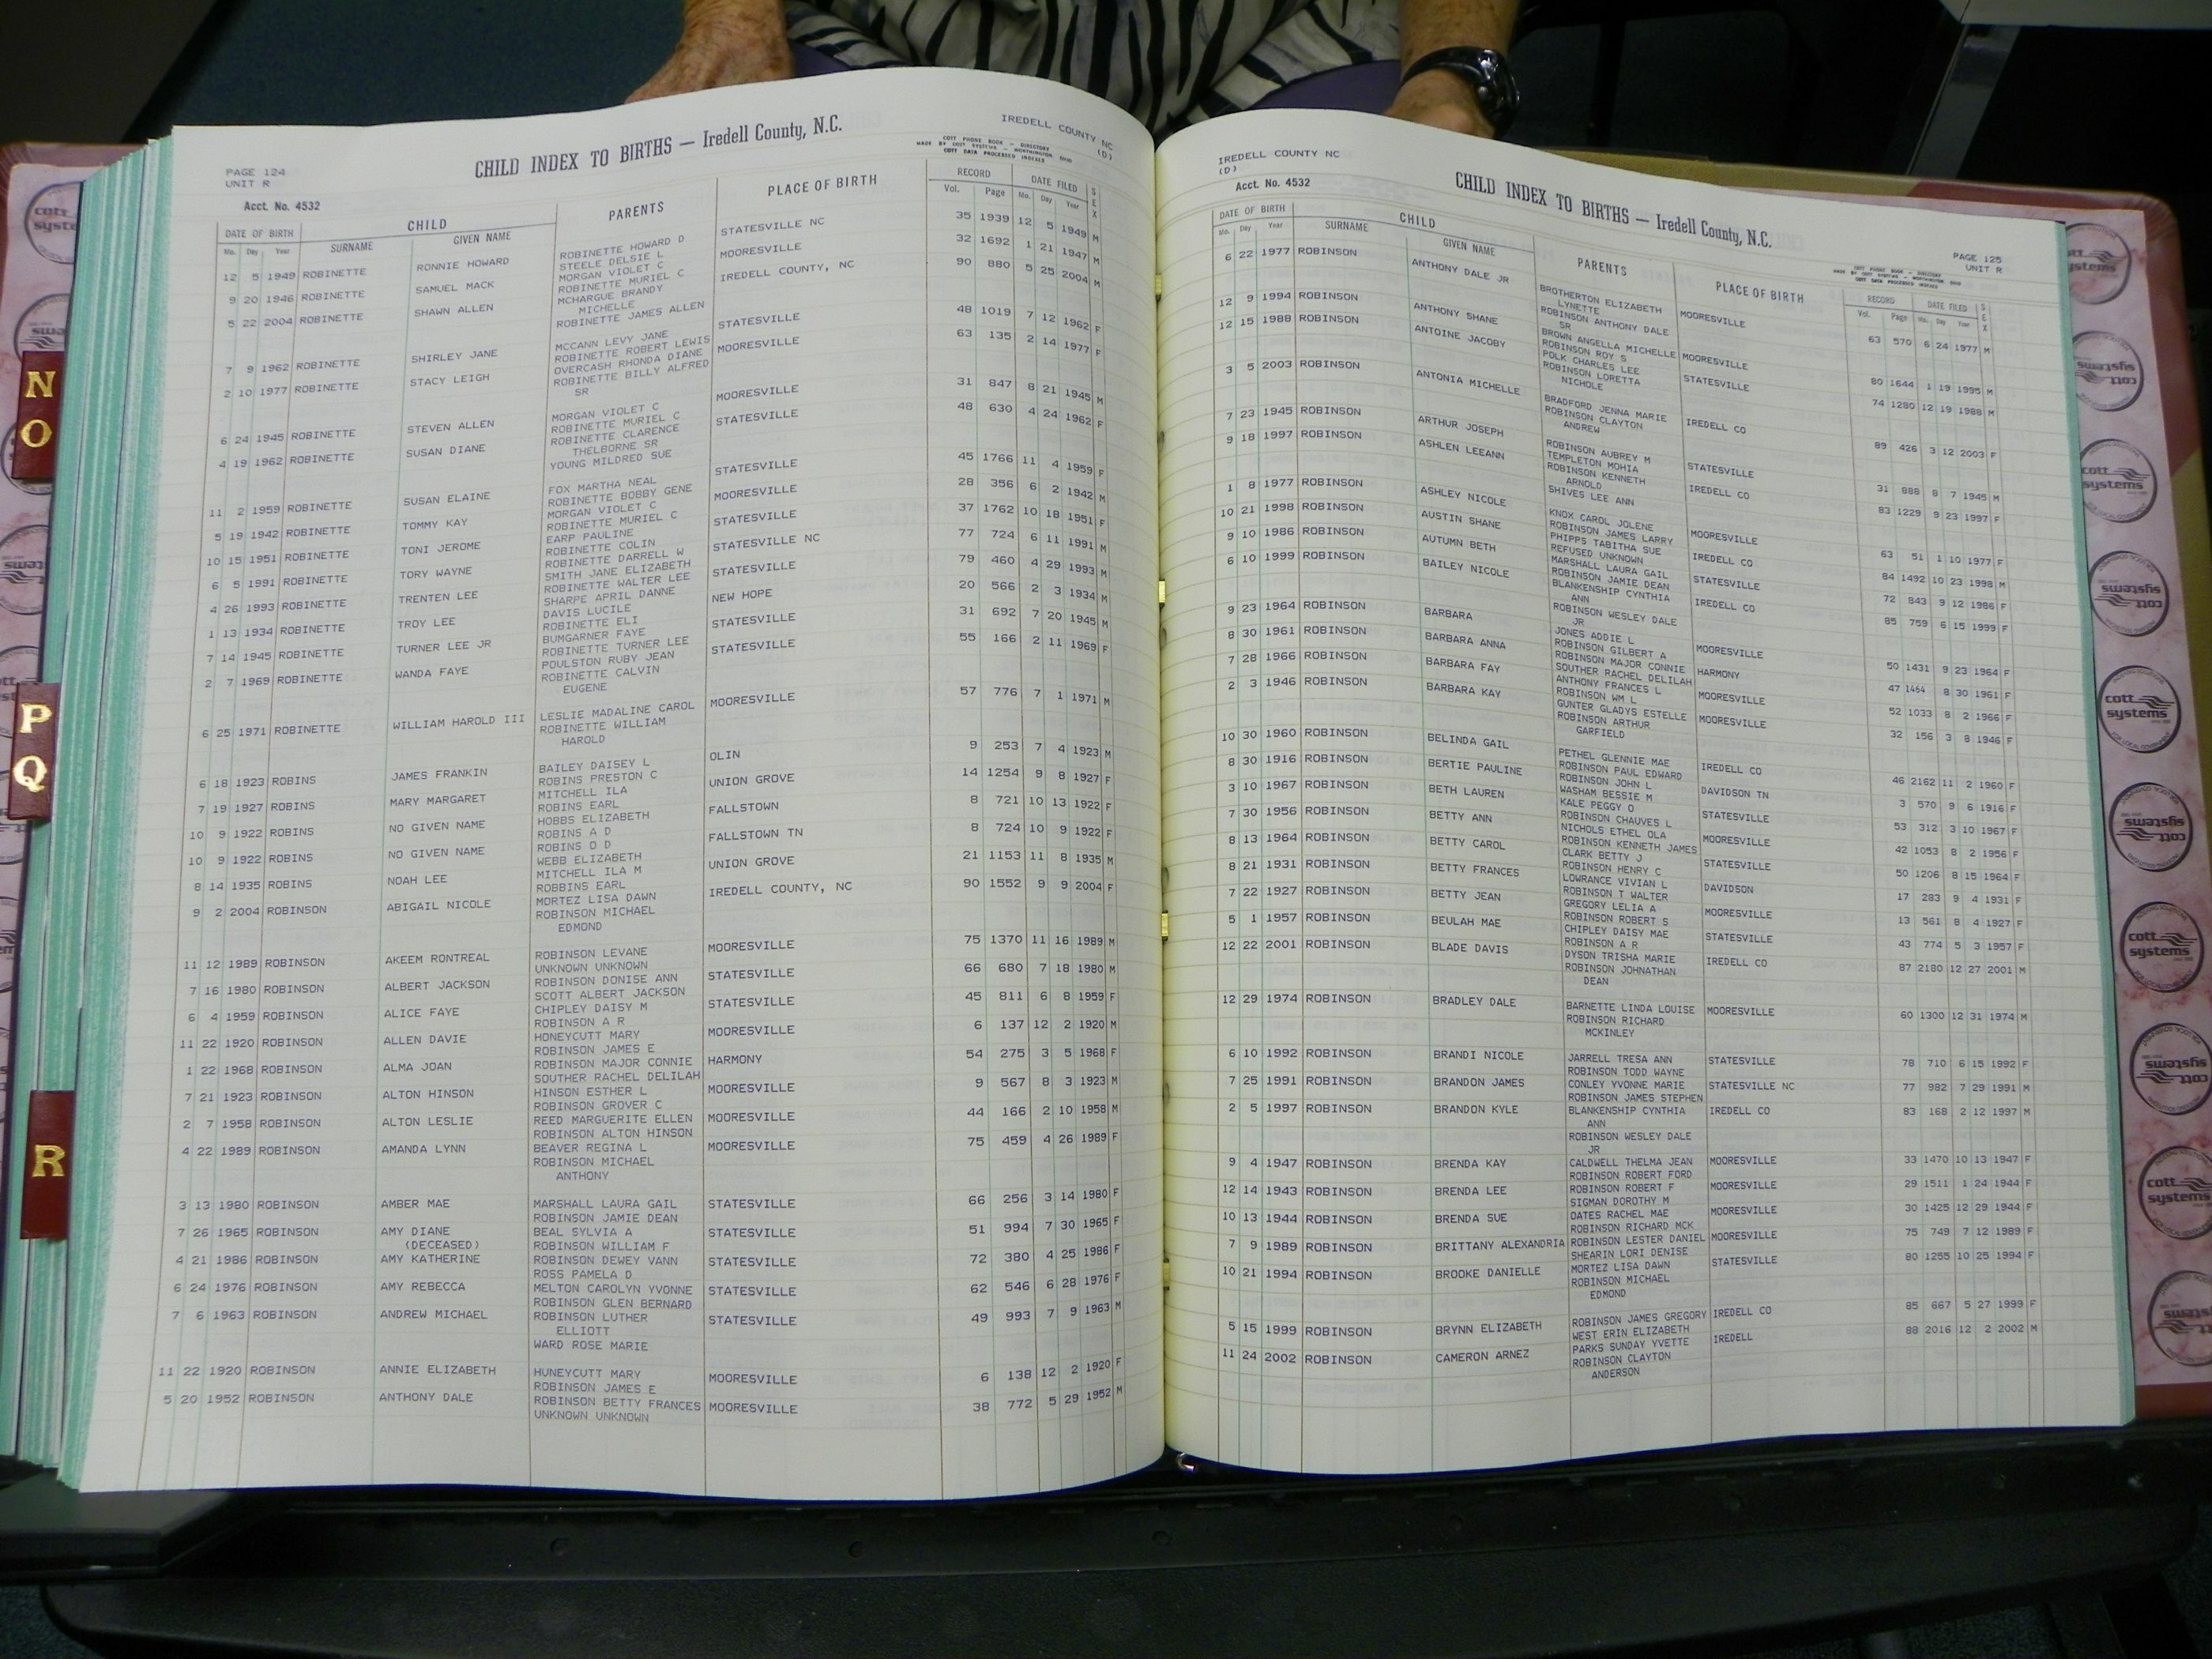 PAGE 124
UNIT R
Acct. No. 4532
CHILD INDEX TO BIRTHS — Iredell County, N.C.
IREDELL COUNTY NC
(D)
COTT PHONE BOOK — DIRECTORY
MADE BY COTT SYSTEMS — WORTHINGTON, OHIO
COTT DATA PROCESSED INDEXES
DATE OF BIRTH CHILD PARENTS PLACE OF BIRTH RECORD DATE FILED SEX
Mo. Day Year SURNAME GIVEN NAME Vol. Page Mo. Day Year
12 5 1949 ROBINETTE RONNIE HOWARD ROBINETTE HOWARD D STATESVILLE NC 35 1939 12 5 1949 M
STEELE DELSIE L
9 20 1946 ROBINETTE SAMUEL MACK MORGAN VIOLET C MOORESVILLE 32 1692 1 21 1947 M
ROBINETTE MURIEL C
5 22 2004 ROBINETTE SHAWN ALLEN MCHARGUE BRANDY IREDELL COUNTY, NC 90 880 5 25 2004 M
MICHELLE
ROBINETTE JAMES ALLEN
7 9 1962 ROBINETTE SHIRLEY JANE MCCANN LEVY JANE STATESVILLE 48 1019 7 12 1962 F
ROBINETTE ROBERT LEWIS
2 10 1977 ROBINETTE STACY LEIGH OVERCASH RHONDA DIANE MOORESVILLE 63 135 2 14 1977 F
ROBINETTE BILLY ALFRED
SR
6 24 1945 ROBINETTE STEVEN ALLEN MORGAN VIOLET C MOORESVILLE 31 847 8 21 1945 M
ROBINETTE MURIEL C
4 19 1962 ROBINETTE SUSAN DIANE ROBINETTE CLARENCE STATESVILLE 48 630 4 24 1962 F
THELBORNE SR
YOUNG MILDRED SUE
11 2 1959 ROBINETTE SUSAN ELAINE FOX MARTHA NEAL STATESVILLE 45 1766 11 4 1959 F
ROBINETTE BOBBY GENE
5 19 1942 ROBINETTE TOMMY KAY MORGAN VIOLET C MOORESVILLE 28 356 6 2 1942 M
ROBINETTE MURIEL C
10 15 1951 ROBINETTE TONI JEROME EARP PAULINE STATESVILLE 37 1762 10 18 1951 F
ROBINETTE COLIN
6 5 1991 ROBINETTE TORY WAYNE ROBINETTE DARRELL W STATESVILLE NC 77 724 6 11 1991 M
SMITH JANE ELIZABETH
4 26 1993 ROBINETTE TRENTEN LEE ROBINETTE WALTER LEE STATESVILLE 79 460 4 29 1993 M
SHARPE APRIL DANNE
1 13 1934 ROBINETTE TROY LEE DAVIS LUCILE NEW HOPE 20 566 2 3 1934 M
ROBINETTE ELI
7 14 1945 ROBINETTE TURNER LEE JR BUMGARNER FAYE STATESVILLE 31 692 7 20 1945 M
ROBINETTE TURNER LEE
2 7 1969 ROBINETTE WANDA FAYE POULSTON RUBY JEAN STATESVILLE 55 166 2 11 1969 F
ROBINETTE CALVIN
EUGENE
6 25 1971 ROBINETTE WILLIAM HAROLD III LESLIE MADALINE CAROL MOORESVILLE 57 776 7 1 1971 M
ROBINETTE WILLIAM
HAROLD
6 18 1923 ROBINS JAMES FRANKIN BAILEY DAISEY L OLIN 9 253 7 4 1923 M
ROBINS PRESTON C
7 19 1927 ROBINS MARY MARGARET MITCHELL ILA UNION GROVE 14 1254 9 8 1927 F
ROBINS EARL
10 9 1922 ROBINS NO GIVEN NAME HOBBS ELIZABETH FALLSTOWN 8 721 10 13 1922 F
ROBINS A D
10 9 1922 ROBINS NO GIVEN NAME ROBINS O D FALLSTOWN TN 8 724 10 9 1922 F
WEBB ELIZABETH
8 14 1935 ROBINS NOAH LEE MITCHELL ILA M UNION GROVE 21 1153 11 8 1935 M
ROBBINS EARL
9 2 2004 ROBINSON ABIGAIL NICOLE MORTEZ LISA DAWN IREDELL COUNTY, NC 90 1552 9 9 2004 F
ROBINSON MICHAEL
EDMOND
11 12 1989 ROBINSON AKEEM RONTREAL ROBINSON LEVANE MOORESVILLE 75 1370 11 16 1989 M
UNKNOWN UNKNOWN
7 16 1980 ROBINSON ALBERT JACKSON ROBINSON DONISE ANN STATESVILLE 66 680 7 18 1980 M
SCOTT ALBERT JACKSON
6 4 1959 ROBINSON ALICE FAYE CHIPLEY DAISY M STATESVILLE 45 811 6 8 1959 F
ROBINSON A R
11 22 1920 ROBINSON ALLEN DAVIE HONEYCUTT MARY MOORESVILLE 6 137 12 2 1920 M
ROBINSON JAMES E
1 22 1968 ROBINSON ALMA JOAN ROBINSON MAJOR CONNIE HARMONY 54 275 3 5 1968 F
SOUTHER RACHEL DELILAH
7 21 1923 ROBINSON ALTON HINSON HINSON ESTHER L MOORESVILLE 9 567 8 3 1923 M
ROBINSON GROVER C
2 7 1958 ROBINSON ALTON LESLIE REED MARGUERITE ELLEN MOORESVILLE 44 166 2 10 1958 M
ROBINSON ALTON HINSON
4 22 1989 ROBINSON AMANDA LYNN BEAVER REGINA L MOORESVILLE 75 459 4 26 1989 F
ROBINSON MICHAEL
ANTHONY
3 13 1980 ROBINSON AMBER MAE MARSHALL LAURA GAIL STATESVILLE 66 256 3 14 1980 F
ROBINSON JAMIE DEAN
7 26 1965 ROBINSON AMY DIANE BEAL SYLVIA A STATESVILLE 51 994 7 30 1965 F
(DECEASED) ROBINSON WILLIAM F
4 21 1986 ROBINSON AMY KATHERINE ROBINSON DEWEY VANN STATESVILLE 72 380 4 25 1986 F
ROSS PAMELA D
6 24 1976 ROBINSON AMY REBECCA MELTON CAROLYN YVONNE STATESVILLE 62 546 6 28 1976 F
ROBINSON GLEN BERNARD
7 6 1963 ROBINSON ANDREW MICHAEL ROBINSON LUTHER STATESVILLE 49 993 7 9 1963 M
ELLIOTT
WARD ROSE MARIE
11 22 1920 ROBINSON ANNIE ELIZABETH HUNEYCUTT MARY MOORESVILLE 6 138 12 2 1920 F
ROBINSON JAMES E
5 20 1952 ROBINSON ANTHONY DALE ROBINSON BETTY FRANCES MOORESVILLE 38 772 5 29 1952 M
UNKNOWN UNKNOWN
IREDELL COUNTY NC
(D)
Acct. No. 4532
CHILD INDEX TO BIRTHS — Iredell County, N.C.
PAGE 125
UNIT R
COTT PHONE BOOK — DIRECTORY
MADE BY COTT SYSTEMS — WORTHINGTON, OHIO
COTT DATA PROCESSED INDEXES
DATE OF BIRTH CHILD PARENTS PLACE OF BIRTH RECORD DATE FILED SEX
Mo. Day Year SURNAME GIVEN NAME Vol. Page Mo. Day Year
6 22 1977 ROBINSON ANTHONY DALE JR BROTHERTON ELIZABETH MOORESVILLE 63 570 6 24 1977 M
LYNETTE
ROBINSON ANTHONY DALE
SR
12 9 1994 ROBINSON ANTHONY SHANE BROWN ANGELLA MICHELLE MOORESVILLE 80 1644 1 19 1995 M
ROBINSON ROY S
12 15 1988 ROBINSON ANTOINE JACOBY POLK CHARLES LEE STATESVILLE 74 1280 12 19 1988 M
ROBINSON LORETTA
NICHOLE
3 5 2003 ROBINSON ANTONIA MICHELLE BRADFORD JENNA MARIE IREDELL CO 89 426 3 12 2003 F
ROBINSON CLAYTON
ANDREW
7 23 1945 ROBINSON ARTHUR JOSEPH ROBINSON AUBREY M STATESVILLE 31 888 8 7 1945 M
TEMPLETON MOHIA
9 18 1997 ROBINSON ASHLEN LEEANN ROBINSON KENNETH IREDELL CO 83 1229 9 23 1997 F
ARNOLD
SHIVES LEE ANN
1 8 1977 ROBINSON ASHLEY NICOLE KNOX CAROL JOLENE MOORESVILLE 63 51 1 10 1977 F
ROBINSON JAMES LARRY
10 21 1998 ROBINSON AUSTIN SHANE PHIPPS TABITHA SUE IREDELL CO 84 1492 10 23 1998 M
REFUSED UNKNOWN
9 10 1986 ROBINSON AUTUMN BETH MARSHALL LAURA GAIL STATESVILLE 72 843 9 12 1986 F
ROBINSON JAMIE DEAN
6 10 1999 ROBINSON BAILEY NICOLE BLANKENSHIP CYNTHIA IREDELL CO 85 759 6 15 1999 F
ANN
ROBINSON WESLEY DALE
JR
9 23 1964 ROBINSON BARBARA JONES ADDIE L MOORESVILLE 50 1431 9 23 1964 F
ROBINSON GILBERT A
8 30 1961 ROBINSON BARBARA ANNA ROBINSON MAJOR CONNIE HARMONY 47 1464 8 30 1961 F
SOUTHER RACHEL DELILAH
7 28 1966 ROBINSON BARBARA FAY ANTHONY FRANCES L MOORESVILLE 52 1033 8 2 1966 F
ROBINSON WM L
2 3 1946 ROBINSON BARBARA KAY GUNTER GLADYS ESTELLE MOORESVILLE 32 156 3 8 1946 F
ROBINSON ARTHUR
GARFIELD
10 30 1960 ROBINSON BELINDA GAIL PETHEL GLENNIE MAE IREDELL CO 46 2162 11 2 1960 F
ROBINSON PAUL EDWARD
8 30 1916 ROBINSON BERTIE PAULINE ROBINSON JOHN L DAVIDSON TN 3 570 9 6 1916 F
WASHAM BESSIE M
3 10 1967 ROBINSON BETH LAUREN KALE PEGGY O STATESVILLE 53 312 3 10 1967 F
ROBINSON CHAUVES L
7 30 1956 ROBINSON BETTY ANN NICHOLS ETHEL OLA MOORESVILLE 42 1053 8 2 1956 F
ROBINSON KENNETH JAMES
8 13 1964 ROBINSON BETTY CAROL CLARK BETTY J STATESVILLE 50 1206 8 15 1964 F
ROBINSON HENRY C
8 21 1931 ROBINSON BETTY FRANCES LOWRANCE VIVIAN L DAVIDSON 17 283 9 4 1931 F
ROBINSON T WALTER
7 22 1927 ROBINSON BETTY JEAN GREGORY LELIA A MOORESVILLE 13 561 8 4 1927 F
ROBINSON ROBERT S
5 1 1957 ROBINSON BEULAH MAE CHIPLEY DAISY MAE STATESVILLE 43 774 5 3 1957 F
ROBINSON A R
12 22 2001 ROBINSON BLADE DAVIS DYSON TRISHA MARIE IREDELL CO 87 2180 12 27 2001 M
ROBINSON JOHNATHAN
DEAN
12 29 1974 ROBINSON BRADLEY DALE BARNETTE LINDA LOUISE MOORESVILLE 60 1300 12 31 1974 M
ROBINSON RICHARD
MCKINLEY
6 10 1992 ROBINSON BRANDI NICOLE JARRELL TRESA ANN STATESVILLE 78 710 6 15 1992 F
ROBINSON TODD WAYNE
7 25 1991 ROBINSON BRANDON JAMES CONLEY YVONNE MARIE STATESVILLE NC 77 982 7 29 1991 M
ROBINSON JAMES STEPHEN
2 5 1997 ROBINSON BRANDON KYLE BLANKENSHIP CYNTHIA IREDELL CO 83 168 2 12 1997 M
ANN
ROBINSON WESLEY DALE
JR
9 4 1947 ROBINSON BRENDA KAY CALDWELL THELMA JEAN MOORESVILLE 33 1470 10 13 1947 F
ROBINSON ROBERT FORD
12 14 1943 ROBINSON BRENDA LEE ROBINSON ROBERT F MOORESVILLE 29 1511 1 24 1944 F
SIGMAN DOROTHY M
10 13 1944 ROBINSON BRENDA SUE OATES RACHEL MAE MOORESVILLE 30 1425 12 29 1944 F
ROBINSON RICHARD MCK
7 9 1989 ROBINSON BRITTANY ALEXANDRIA ROBINSON LESTER DANIEL MOORESVILLE 75 749 7 12 1989 F
SHEARIN LORI DENISE
10 21 1994 ROBINSON BROOKE DANIELLE MORTEZ LISA DAWN STATESVILLE 80 1255 10 25 1994 F
ROBINSON MICHAEL
EDMOND
5 15 1999 ROBINSON BRYNN ELIZABETH ROBINSON JAMES GREGORY IREDELL CO 85 667 5 27 1999 F
WEST ERIN ELIZABETH
11 24 2002 ROBINSON CAMERON ARNEZ PARKS SUNDAY YVETTE IREDELL 88 2016 12 2 2002 M
ROBINSON CLAYTON
ANDERSON
N
O
P
Q
R
cott
systems